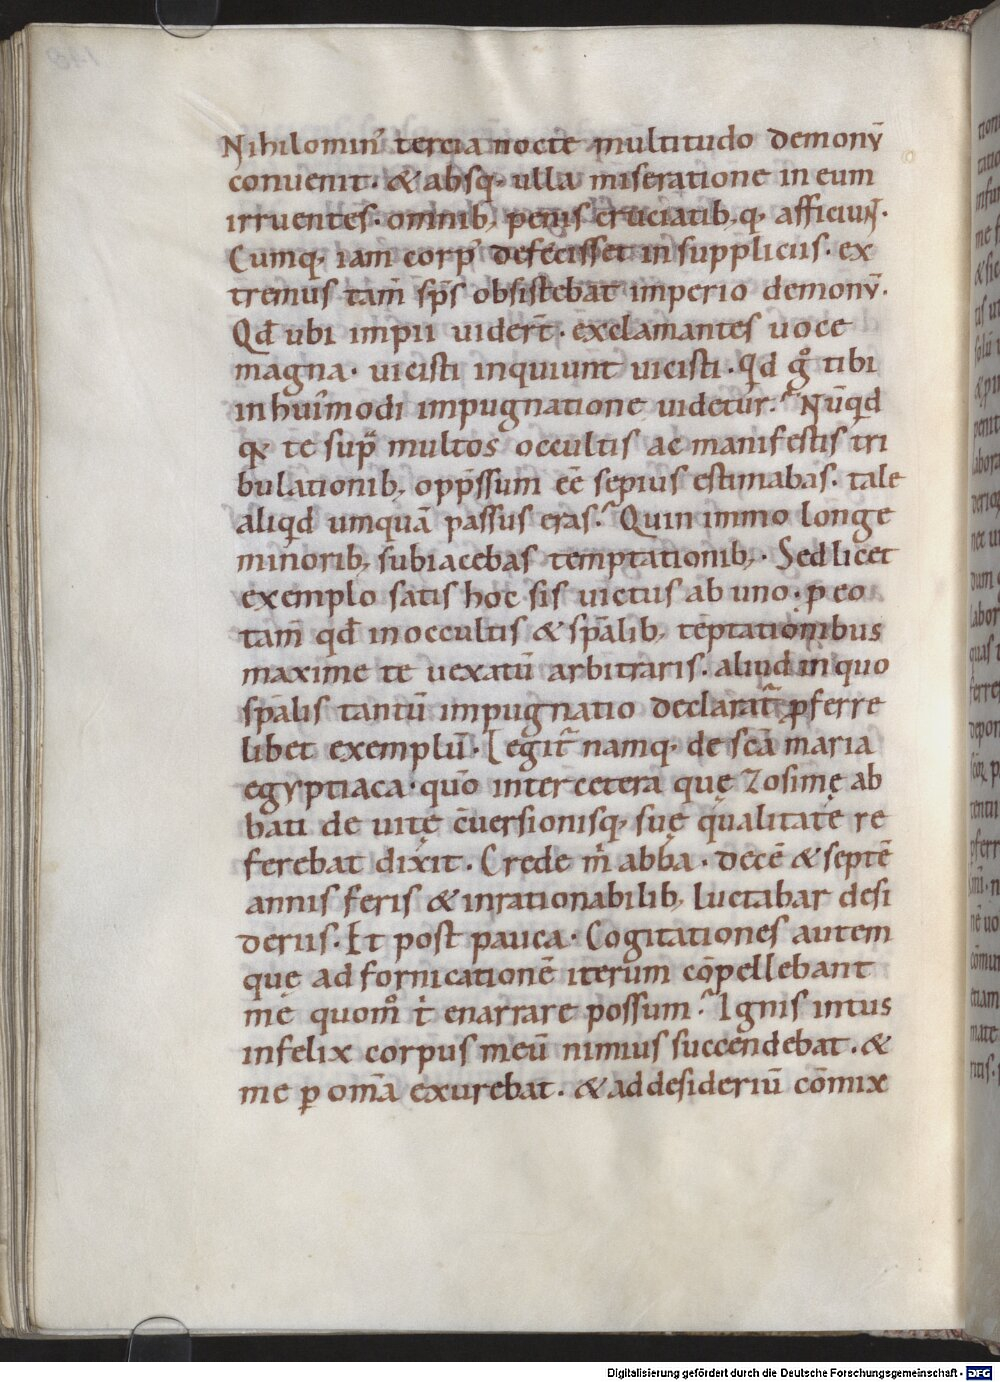 Nihilomin᾽ tercia nocte multitudo demonū
conuenit. & absq; ulla miseratione in eum
irruentes. omnib; penis cruciatib;q; afficiuɴᴛ.
Cumq; iam corp᾽ defecisset in suppliciis. ex
tremus tam̄ sp̄s obsistebat imperio demonū.
Qd̄ ubi impii uider̄t. exclamantes uoce
magna. uicisti inquiunt uicisti. Qd g̊ tibi
in hui᾽modi impugnatione uidetur? Nūqd
qͥ te sup̄ multos occultis ac manifestis tri
bulationib; opp̄ssum eē sepius estimabas. tale
aliqd umquā passus eras? Quin immo longe
minorib; subiacebas temptationib;. Sed licet
exemplo satis hoc sis uictus ab uno. ꝑ eo
tam̄ qd̄ in occultis & sp̄alib; tēptationibus
maxime te uexatū arbitraris. aliud in quo
sp̄alis tantū impugnatio declarat᷑ ꝓferre
libet exemplū. Legit᷑ namq; de sc̄a maria
egyptiaca. quō inter cetera quę Zosimę ab
bati de uitę c̄uersionisq; suę qualitatē re
ferebat dixit. Crede m̄ abba. decē & septē
annis feris & inrationabilib; luctabar desi
deriis. Et post pauca. Cogitationes autem
quę ad fornicationē iterum cōpellebant
me quom̊ t̄ enarrare possum? Ignis intus
infelix corpus meū nimius succendebat. &
me ꝑ om̄a exurebat. & ad desideriū cōmix
Digitalisierung gefördert durch die Deutsche Forschungsgemeinschaft - DFG